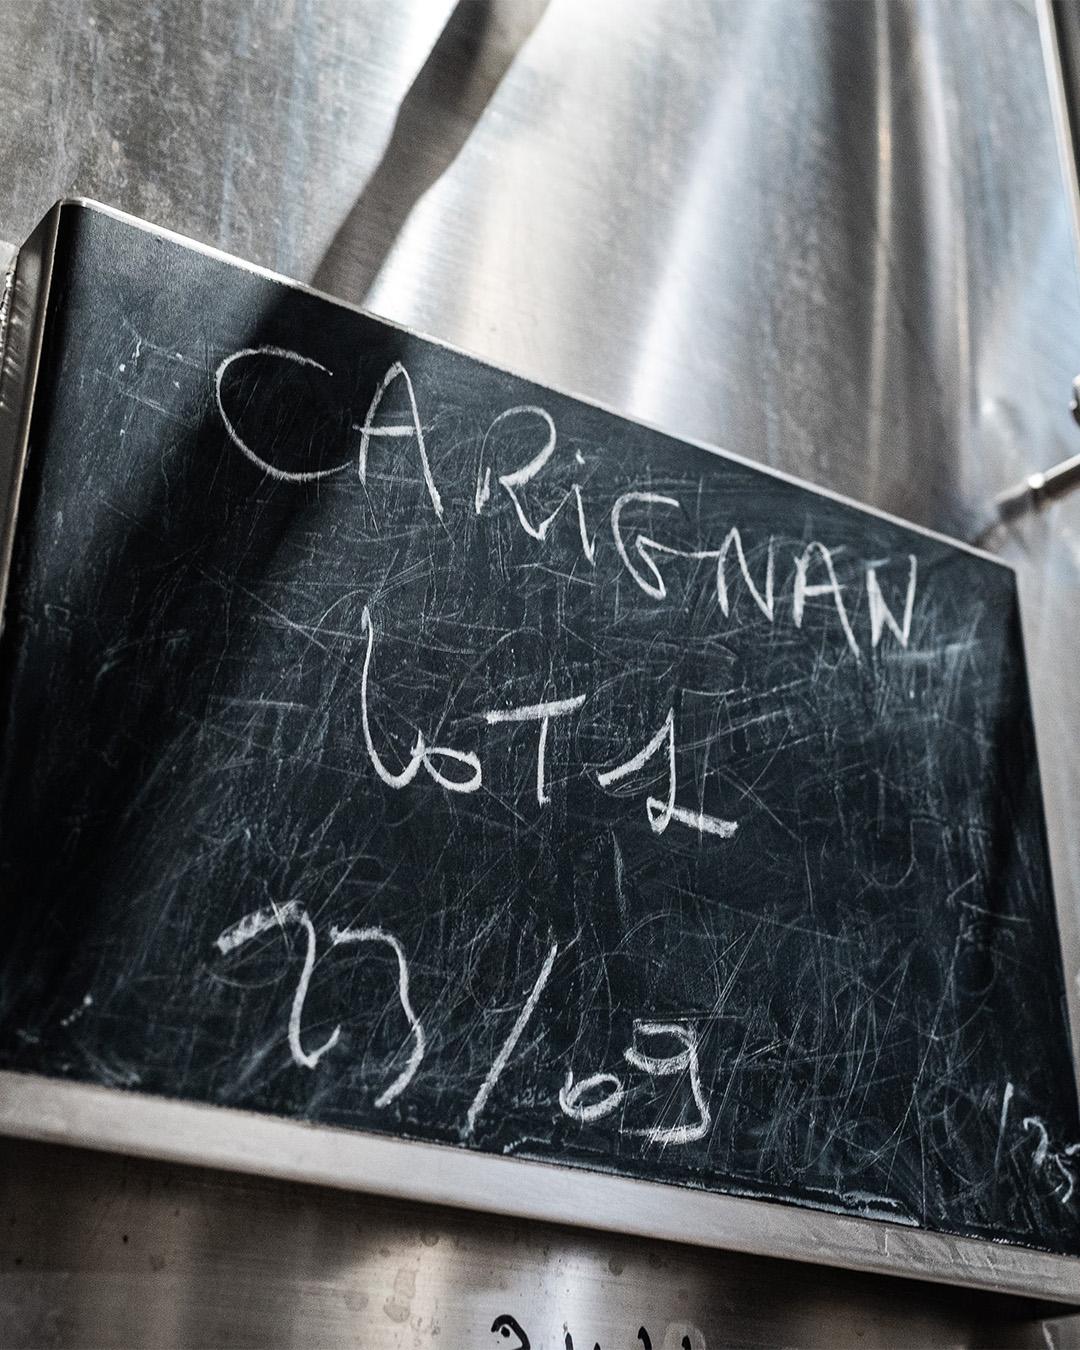 CARiGNAN
LOT 1
23/09